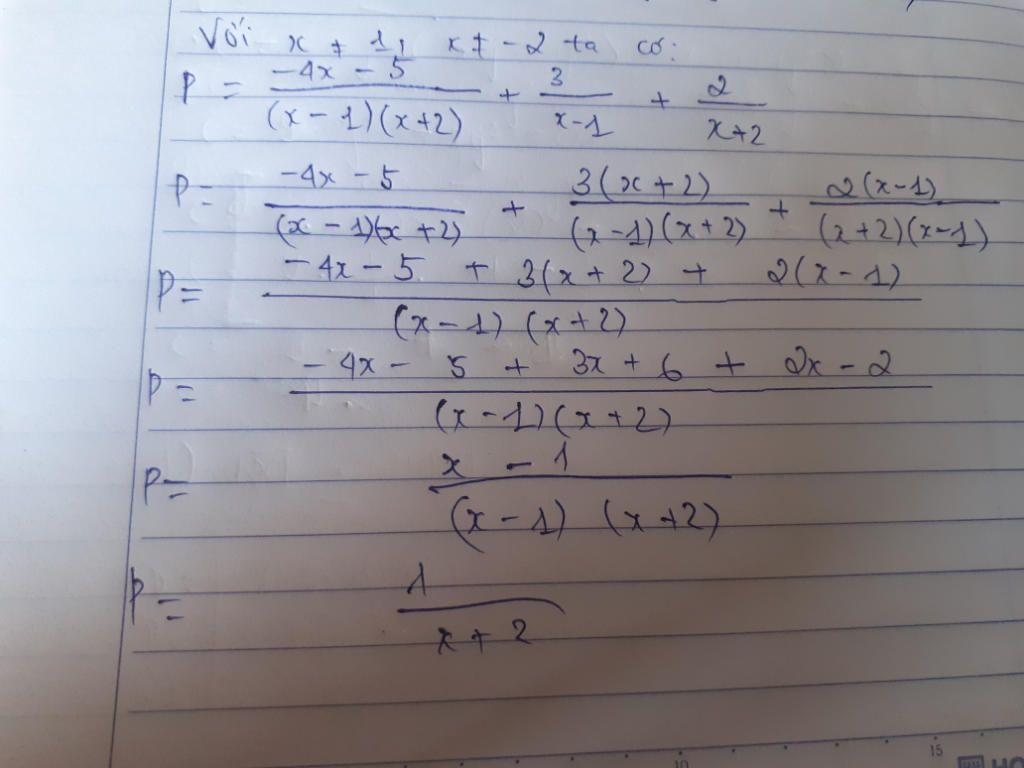 Với x ≠ 1, x ≠ -2 ta có:
P = \frac{-4x - 5}{(x - 1)(x+2)} + \frac{3}{x-1} + \frac{2}{x+2}
P = \frac{-4x - 5}{(x - 1)(x + 2)} + \frac{3(x + 2)}{(x-1)(x+2)} + \frac{2(x-1)}{(x+2)(x-1)}
P = \frac{-4x - 5 + 3(x + 2) + 2(x - 1)}{(x - 1)(x+2)}
P = \frac{-4x - 5 + 3x + 6 + 2x - 2}{(x - 1)(x + 2)}
P = \frac{x - 1}{(x - 1)(x + 2)}
P = \frac{1}{x + 2}
10 15